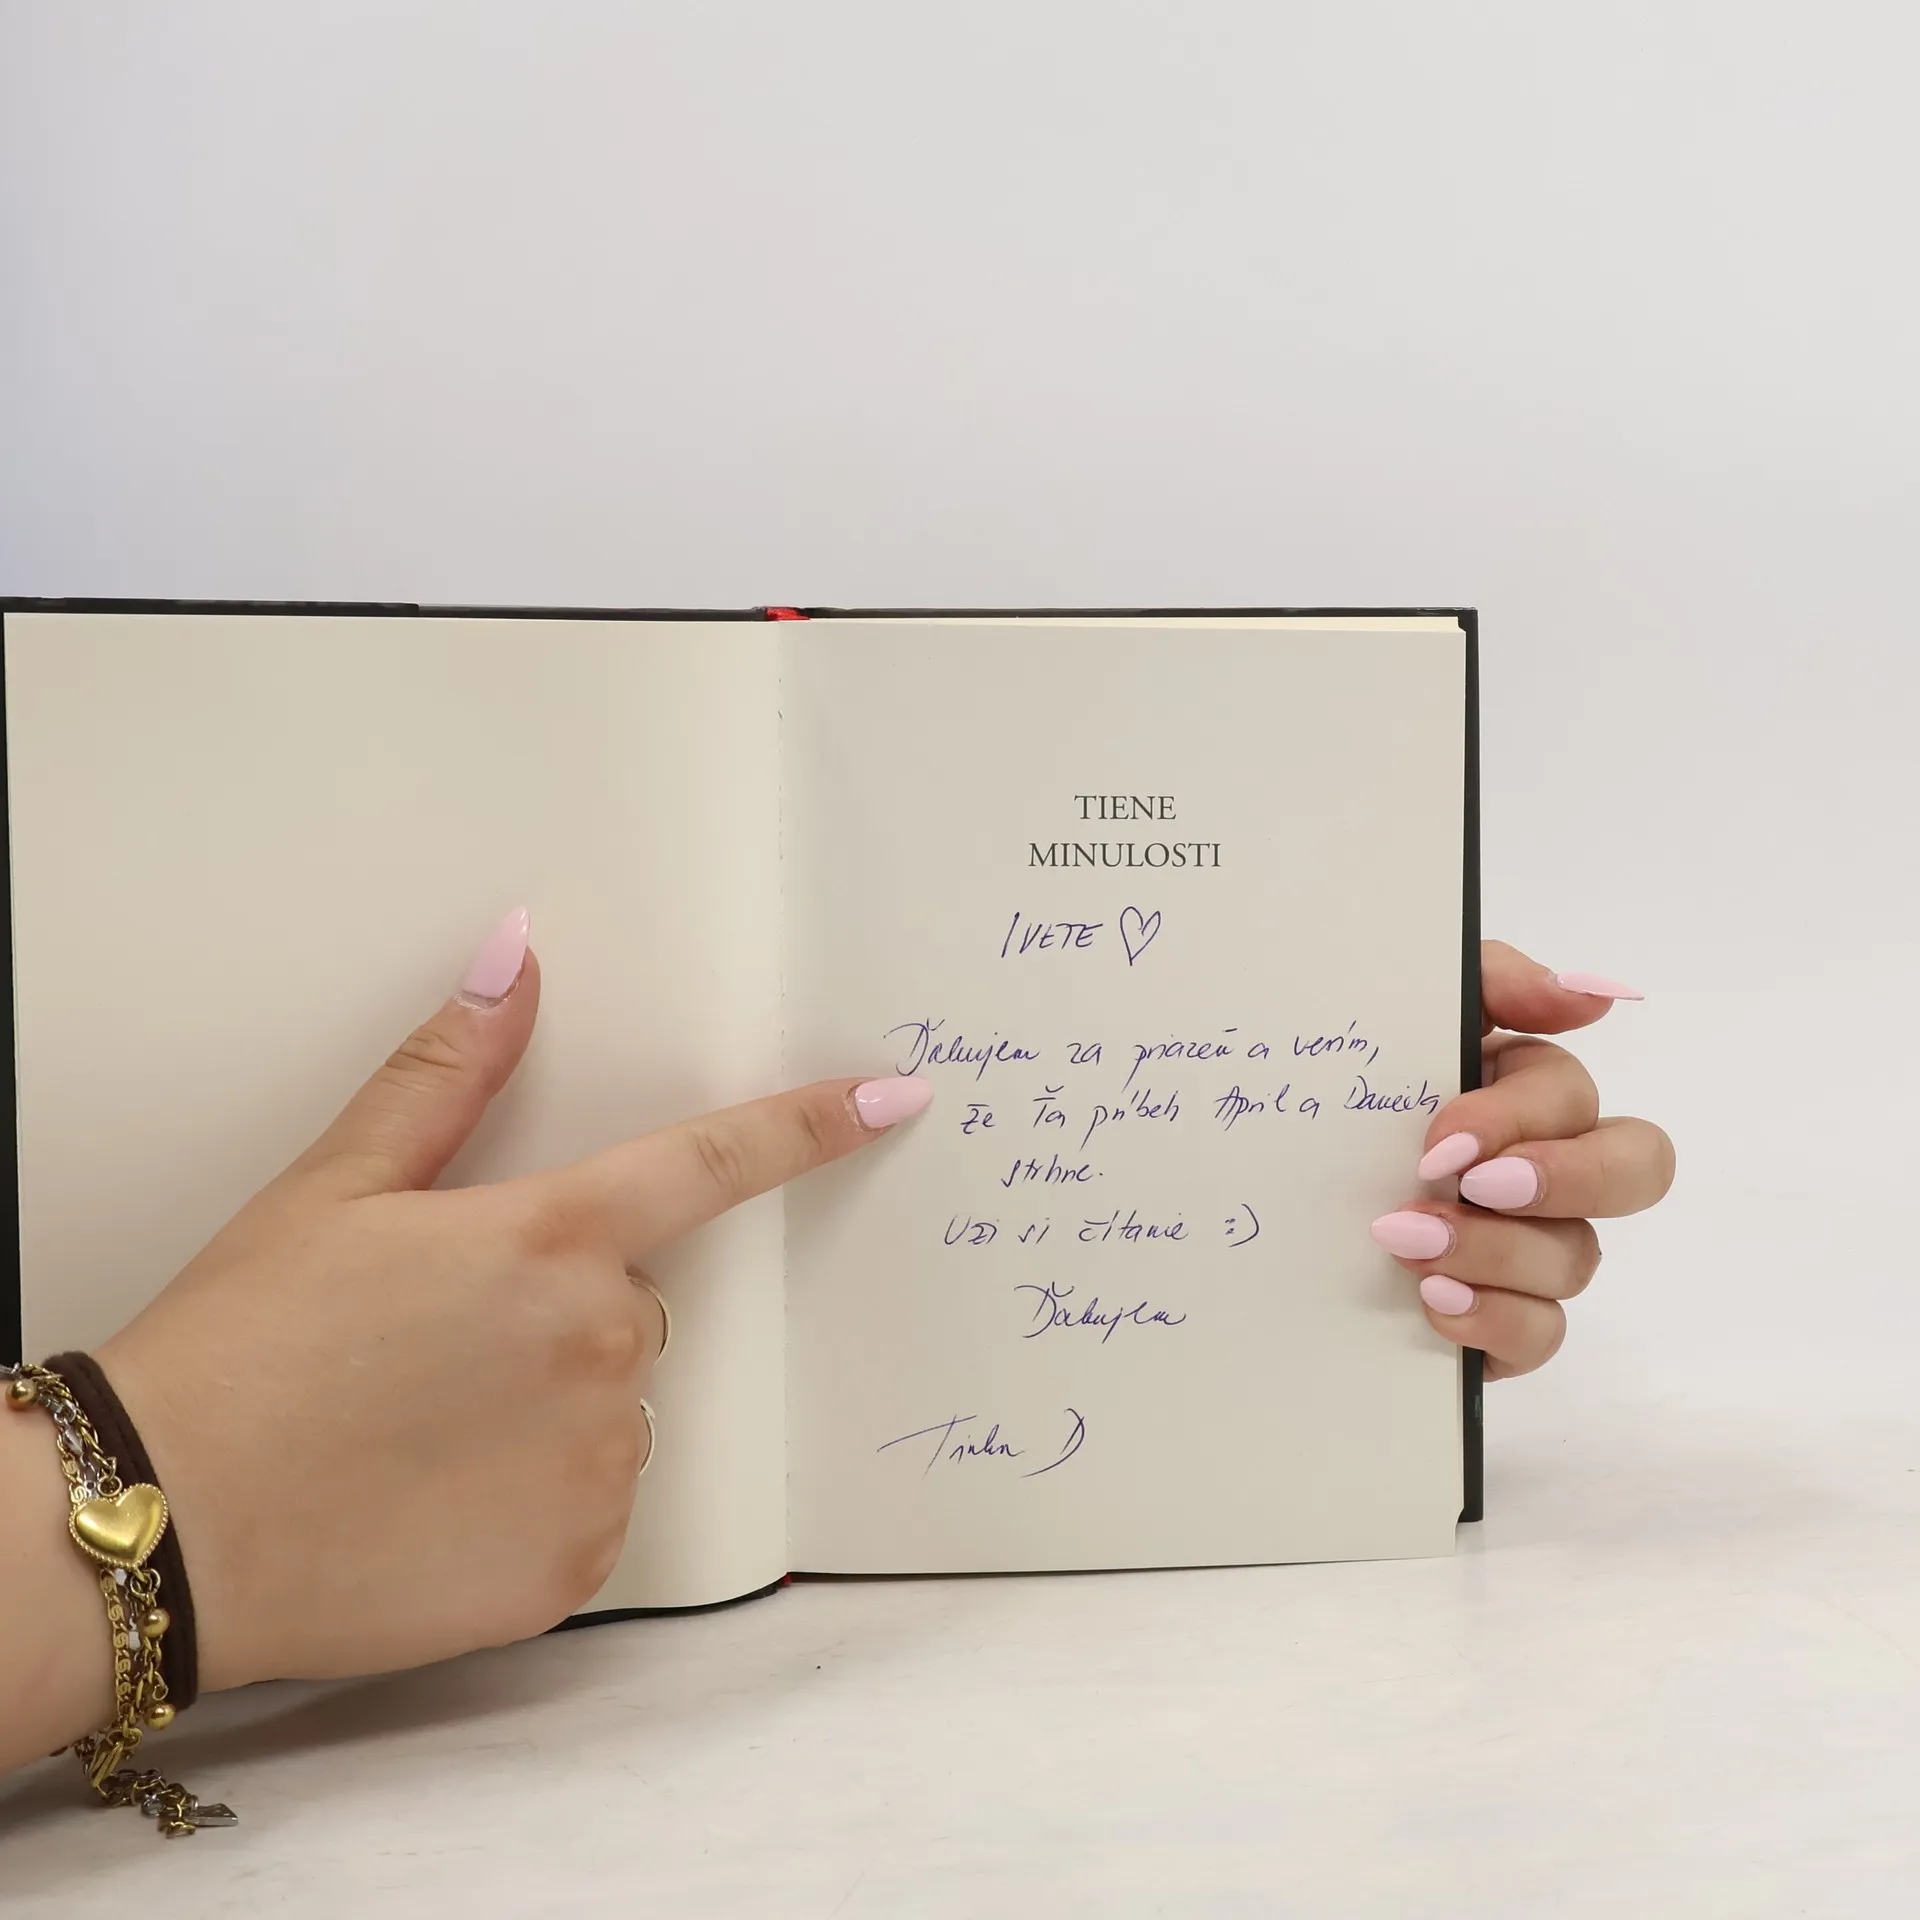 TIENE
MINULOSTI
IVETE ♡
Ďakujem za priazeň a verím,
že Ťa príbeh April a Davida
strhne.
Uži si čítanie :)
Ďakujem
Tinka D